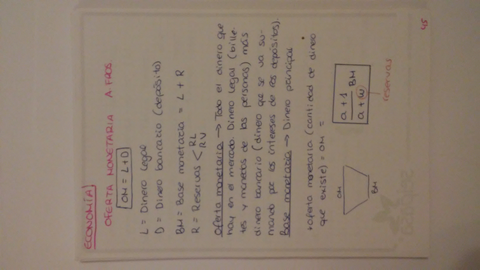 ECONOMÍA
OFERTA MONETARIA A FROS
OM = L + D
L = Dinero Legal
D = Dinero bancario (depósito)
BM = Base monetaria = L + R
R = Reservas < RL
RV
Oferta monetaria → Todo el dinero que
hay en el mercado. Dinero Legal (bille-
tes y monedas de las personas) más
dinero bancario (dinero que se va su-
mando por los intereses de los depósitos).
Base monetaria → Dinero principal.
*Oferta monetaria (cantidad de dinero
que existe) = OM =
a + 1
a + w
BM
reservas
OM
BM
45